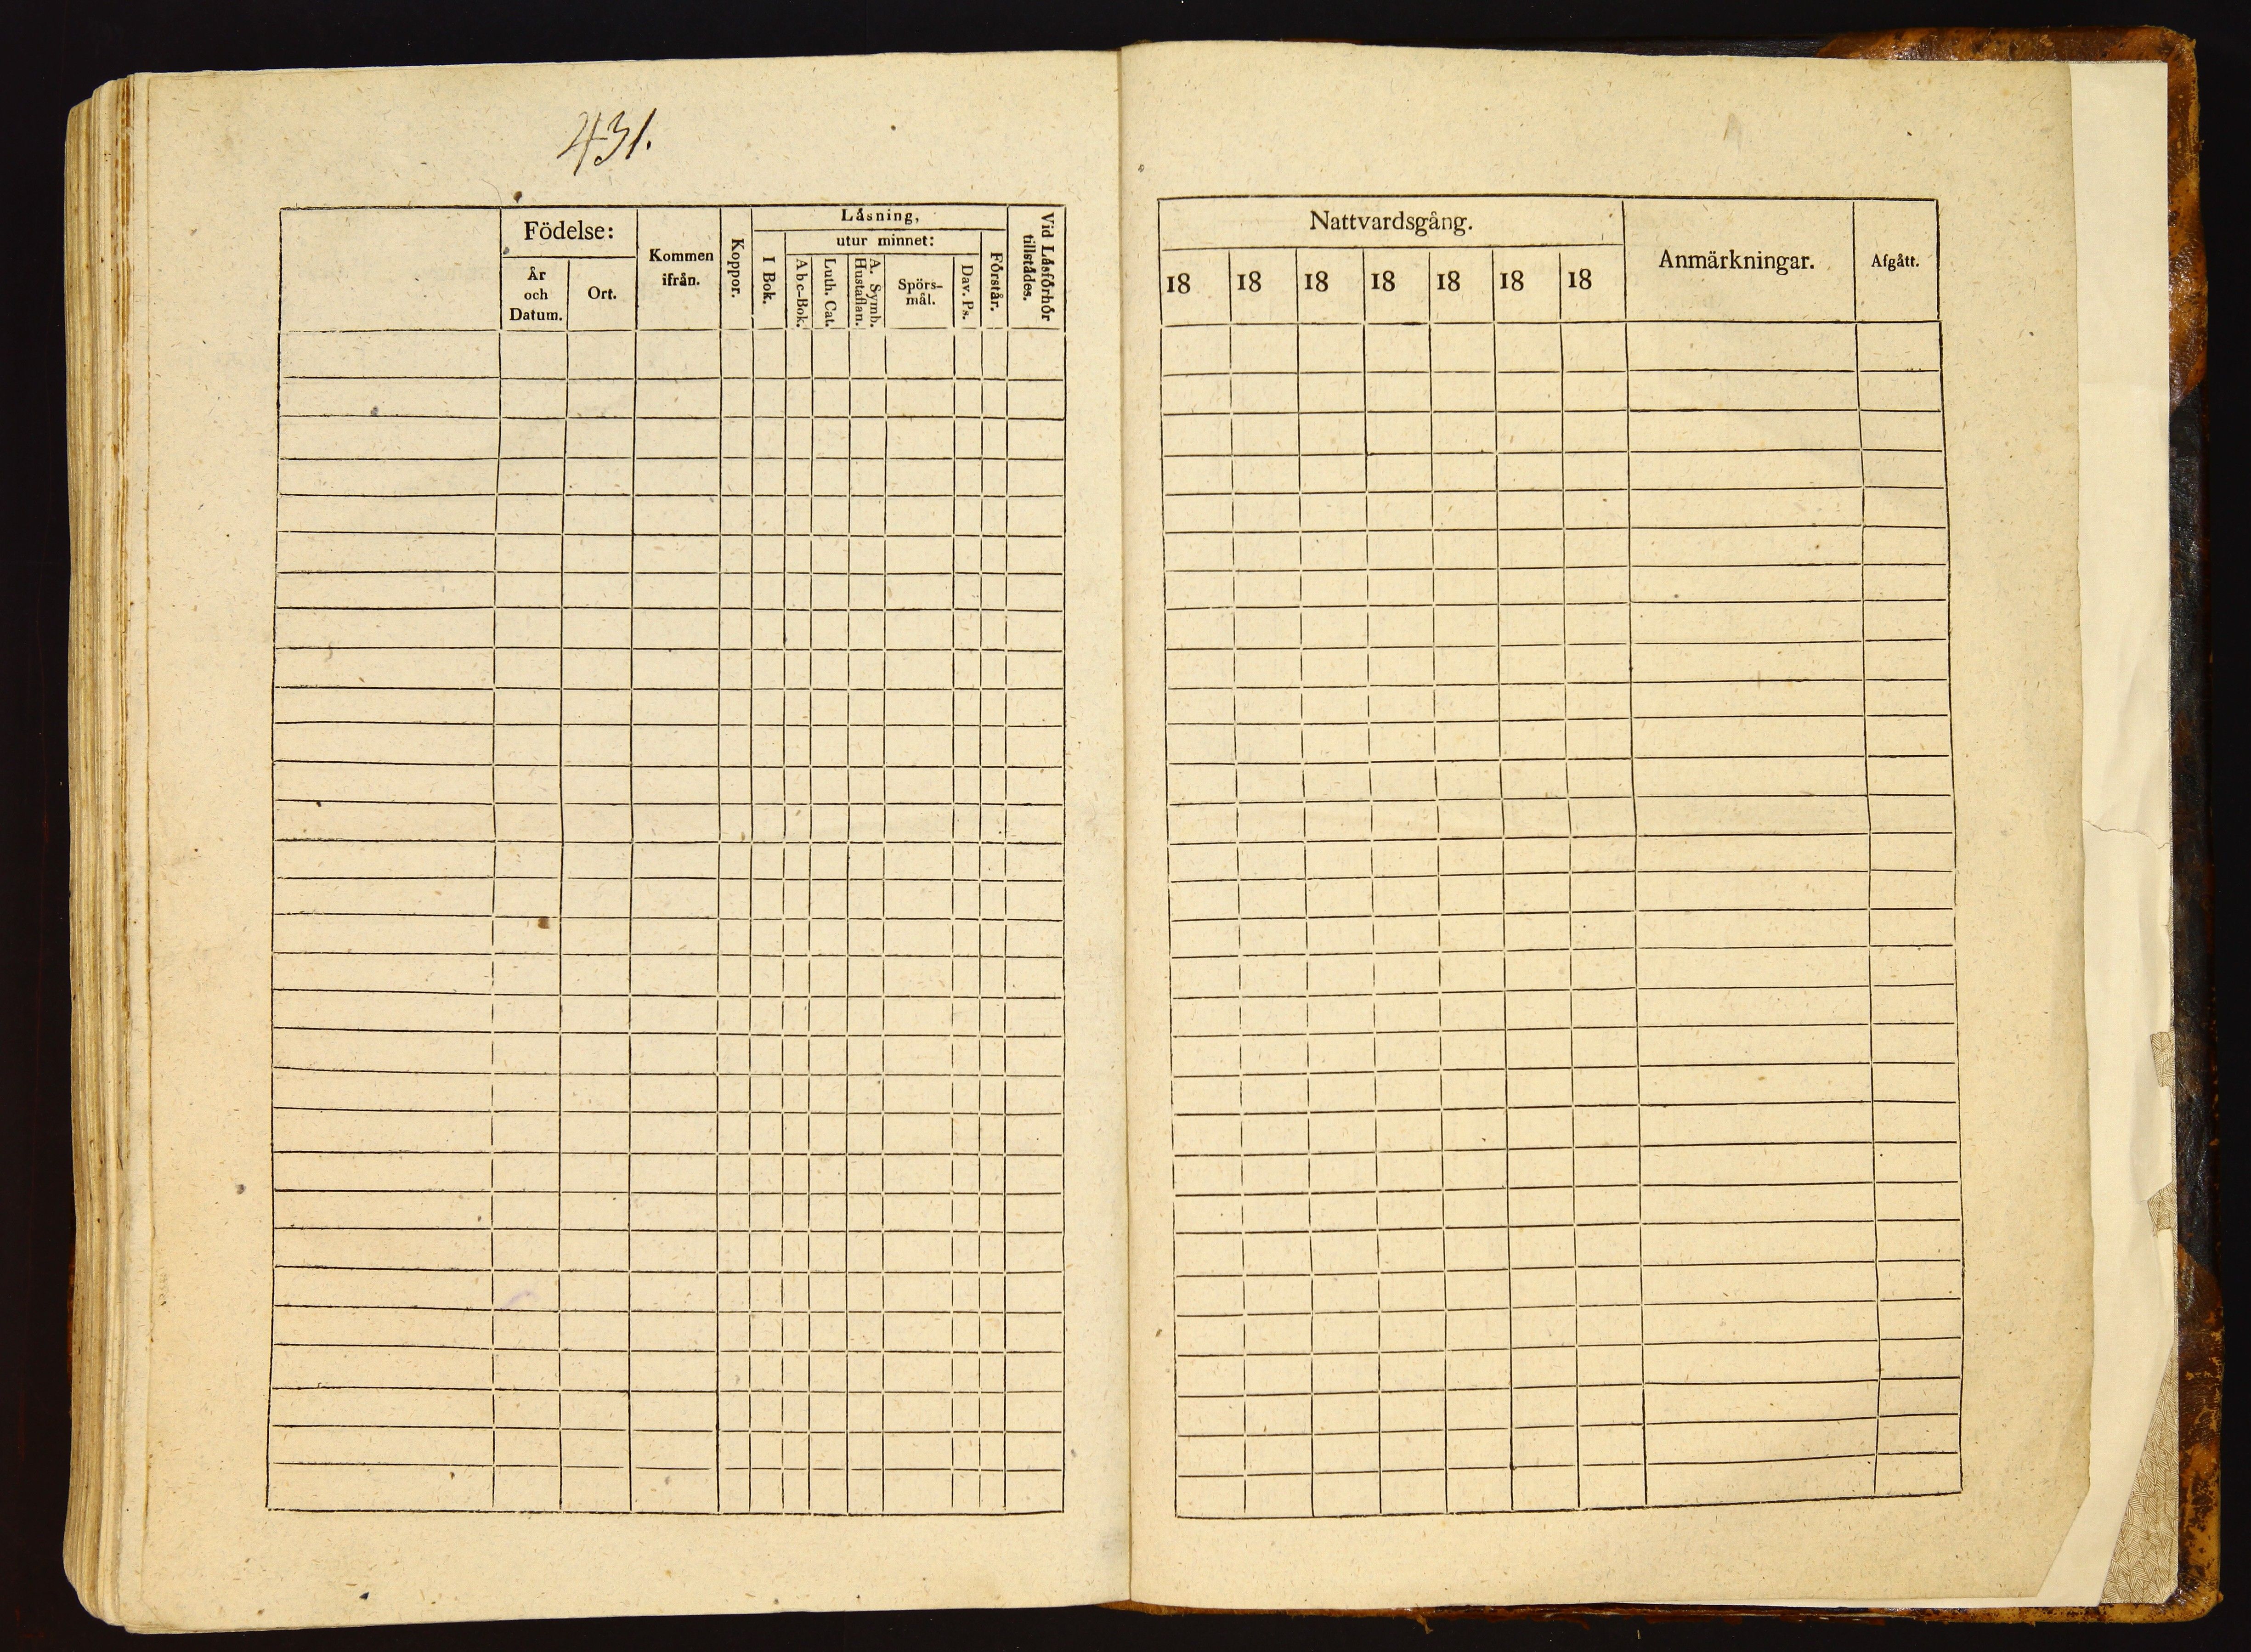 431.
Födelse:
År
och
Datum.
Ort.
Kommen
ifrån.
Koppor.
Låsning,
I Bok.
utur minnet:
Abc-Bok.
Luth. Cat.
A. Symb.
Hustaflan.
Spörs-
mål.
Dav. Ps.
Förstår.
Vid Låsförhör
tillstådes.
Nattvardsgång.
18 18 18 18 18 18 18
Anmärkningar.
Afgått.